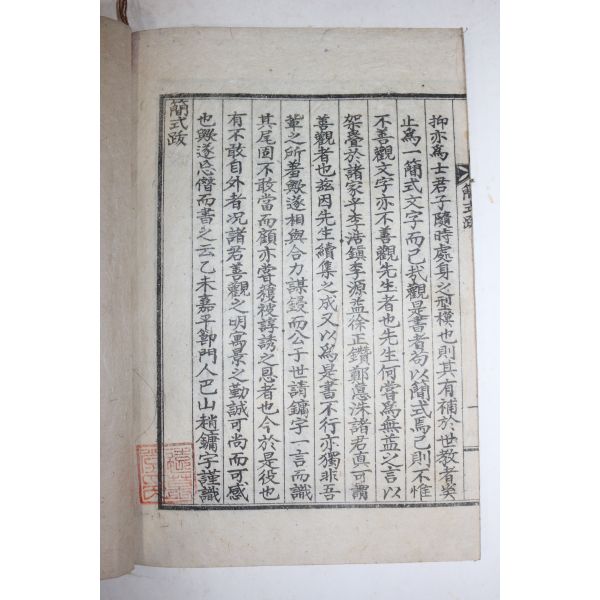 簡式跋
抑亦爲士君子隨時處身之型模也則其有補於世教者奚
止爲一簡式文字而已哉觀是書者苟以簡式焉已則不惟
不善觀文字亦不善觀先生者也先生何嘗爲無益之言以
架疊於諸家乎李浩鎭李源益徐正鑽鄭憙洙諸君眞可謂
善觀者也玆因先生續集之成又以爲是書不行亦獨非吾
輩之所羞歟遂相與合力謀鋟而公于世請鏞字一言而識
其尾固不敢當而顧亦嘗獲被諄誘之恩者也今於是役也
有不敢自外者况諸君善觀之明寓景之勤誠可尚而可感
也歟遂忘僭而書之云乙未嘉平節門人巴山趙鏞字謹識
簡式跋